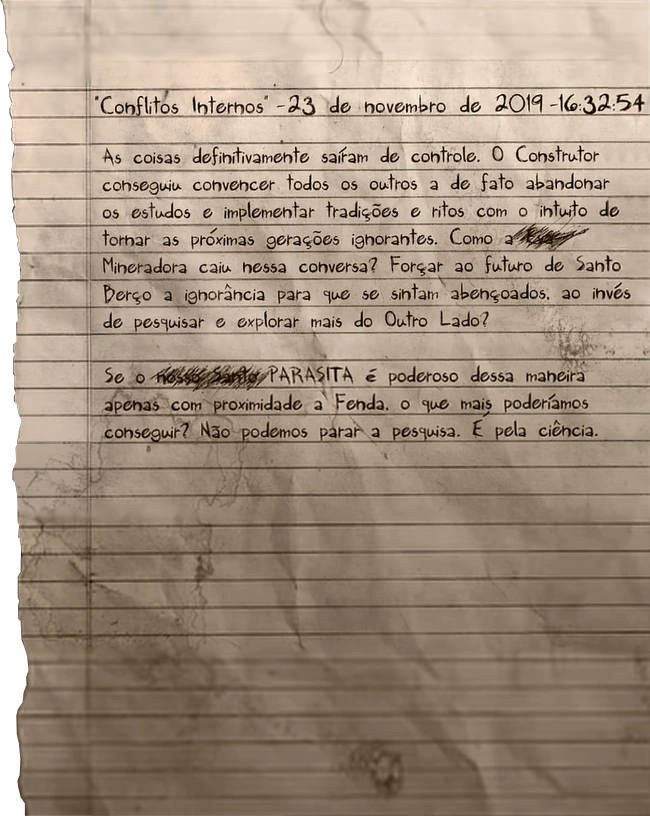 "Conflitos Internos" - 23 de novembro de 2019 - 16:32:54
As coisas definitivamente saíram de controle. O Construtor
conseguiu convencer todos os outros a de fato abandonar
os estudos e implementar tradições e ritos com o intuito de
tornar as próximas gerações ignorantes. Como a
Mineradora caiu nessa conversa? Forçar ao futuro de Santo
Berço a ignorância para que se sintam abençoados, ao invés
de pesquisar e explorar mais do Outro Lado?
Se o PARASITA é poderoso dessa maneira
apenas com proximidade a Fenda, o que mais poderíamos
conseguir? Não podemos parar a pesquisa. É pela ciência.